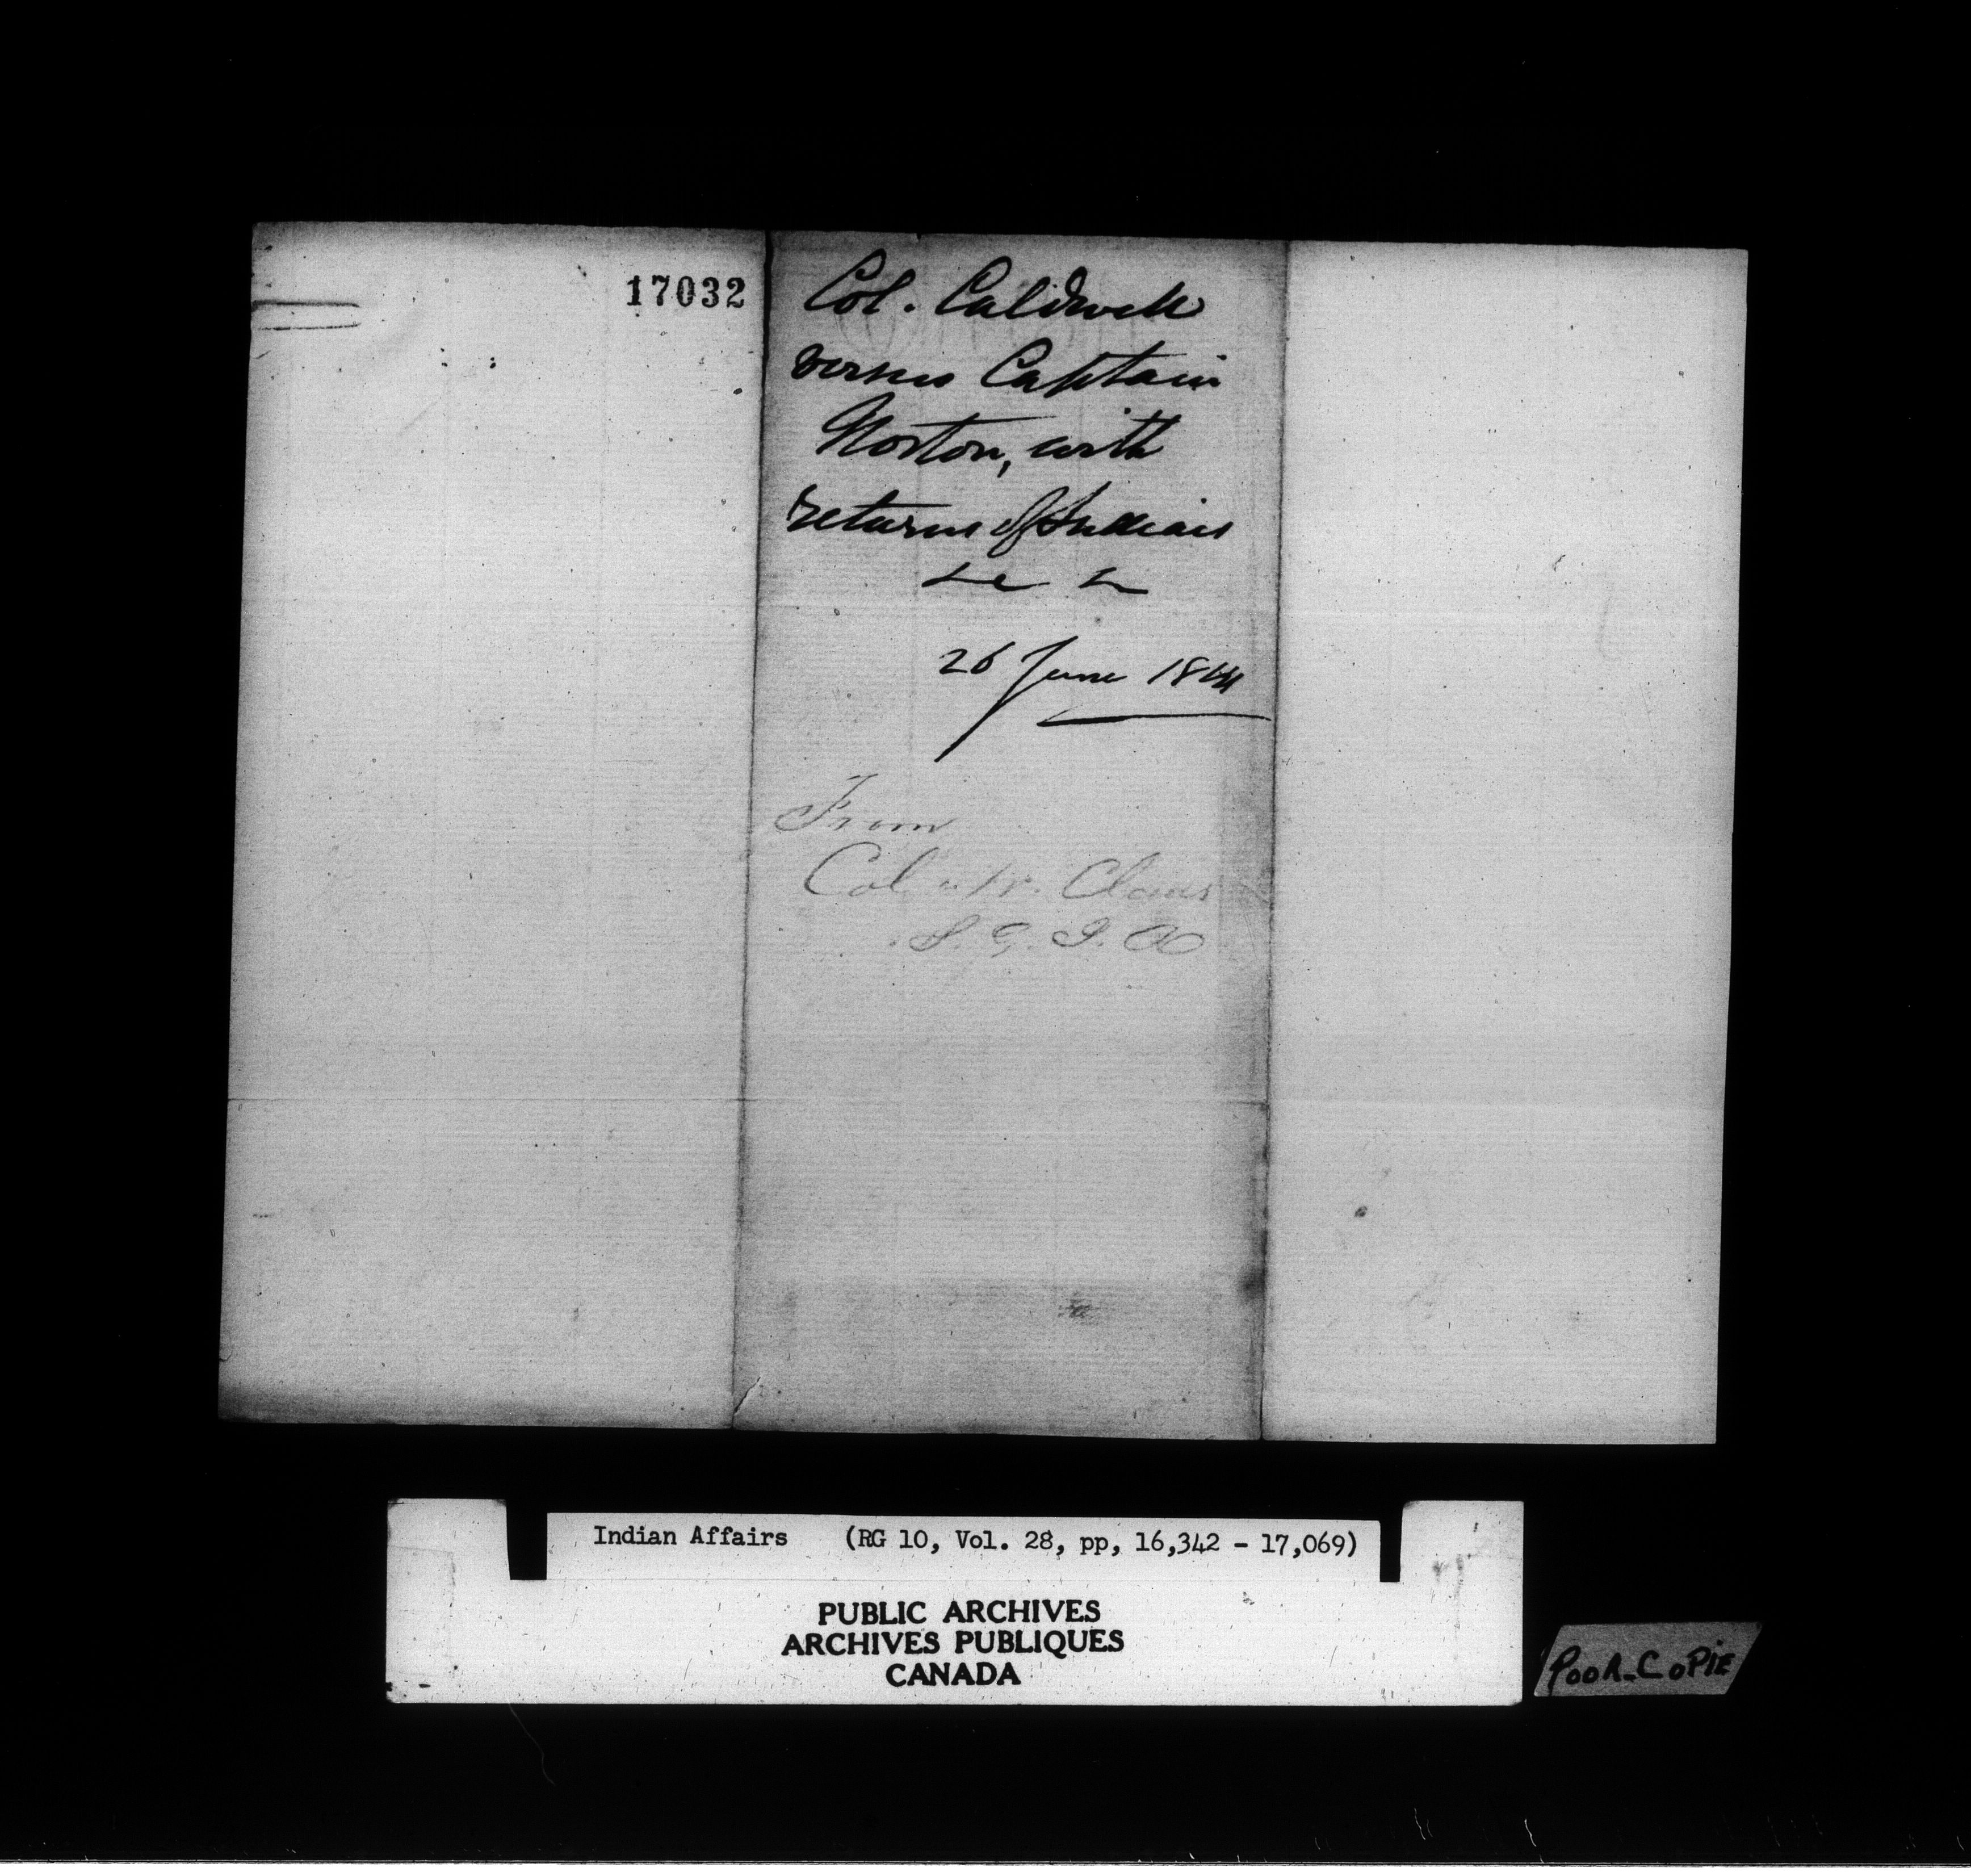 17032
Col. Caldwell
versus Captain
Norton, with
returns of Indians
&c &
26 June 1814
From
Col. W. Claus
S. G. I. A
Indian Affairs (RG 10, Vol. 28, pp, 16,342 - 17,069)
PUBLIC ARCHIVES
ARCHIVES PUBLIQUES
CANADA
POOR_COPIE